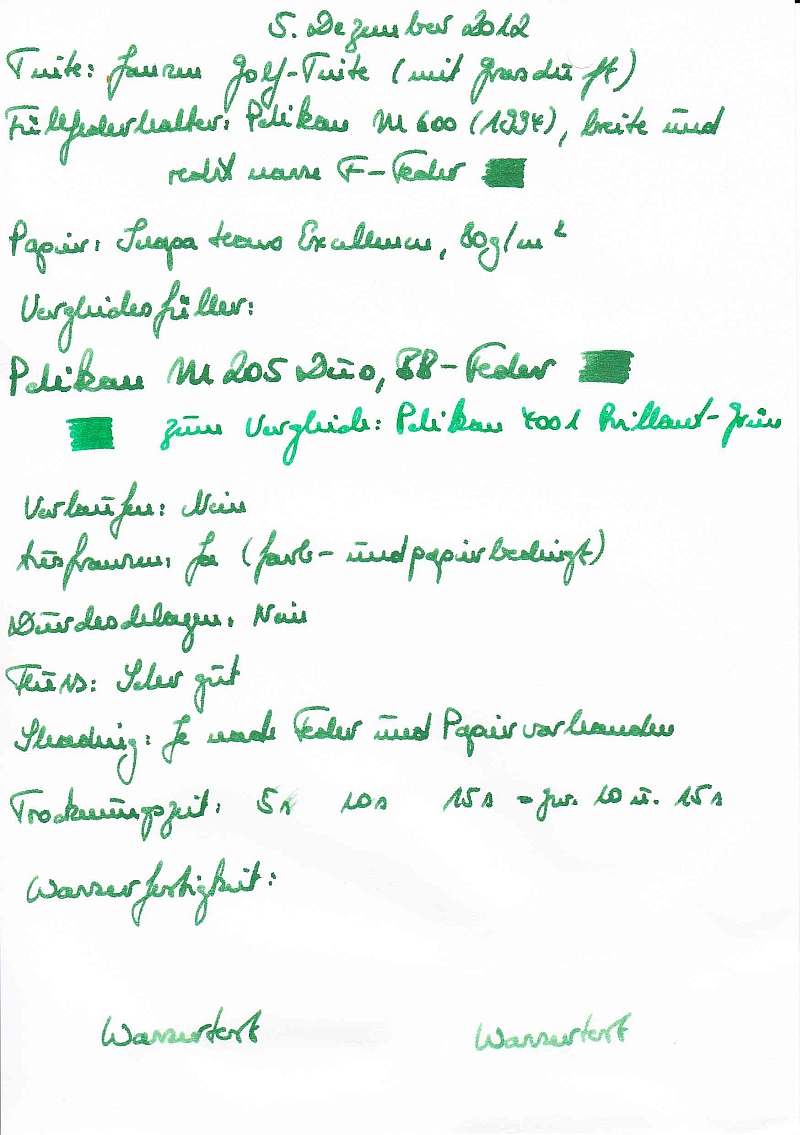 5. Dezember 2012
Tinte: Jansen Golf-Tinte (mit Grasduft)
Füllfederhalter: Pelikan M 600 (1994), breite und
recht nasse F-Feder
Papier: Inapa tecno Excellence, 80g/m²
Vergleichsfüller:
Pelikan M 205 Duo, BB-Feder
zum Vergleich: Pelikan 4001 Brillant-Grün
Verlaufen: Nein
Ausfransen: Ja (farb- und papierbedingt)
Durchschlagen: Nein
Fluss: Sehr gut
Shading: Je nach Feder und Papier vorhanden
Trocknungszeit: 5s 10s 15s = zw. 10 u. 15s
Wasserfestigkeit:
Wassertest Wassertest